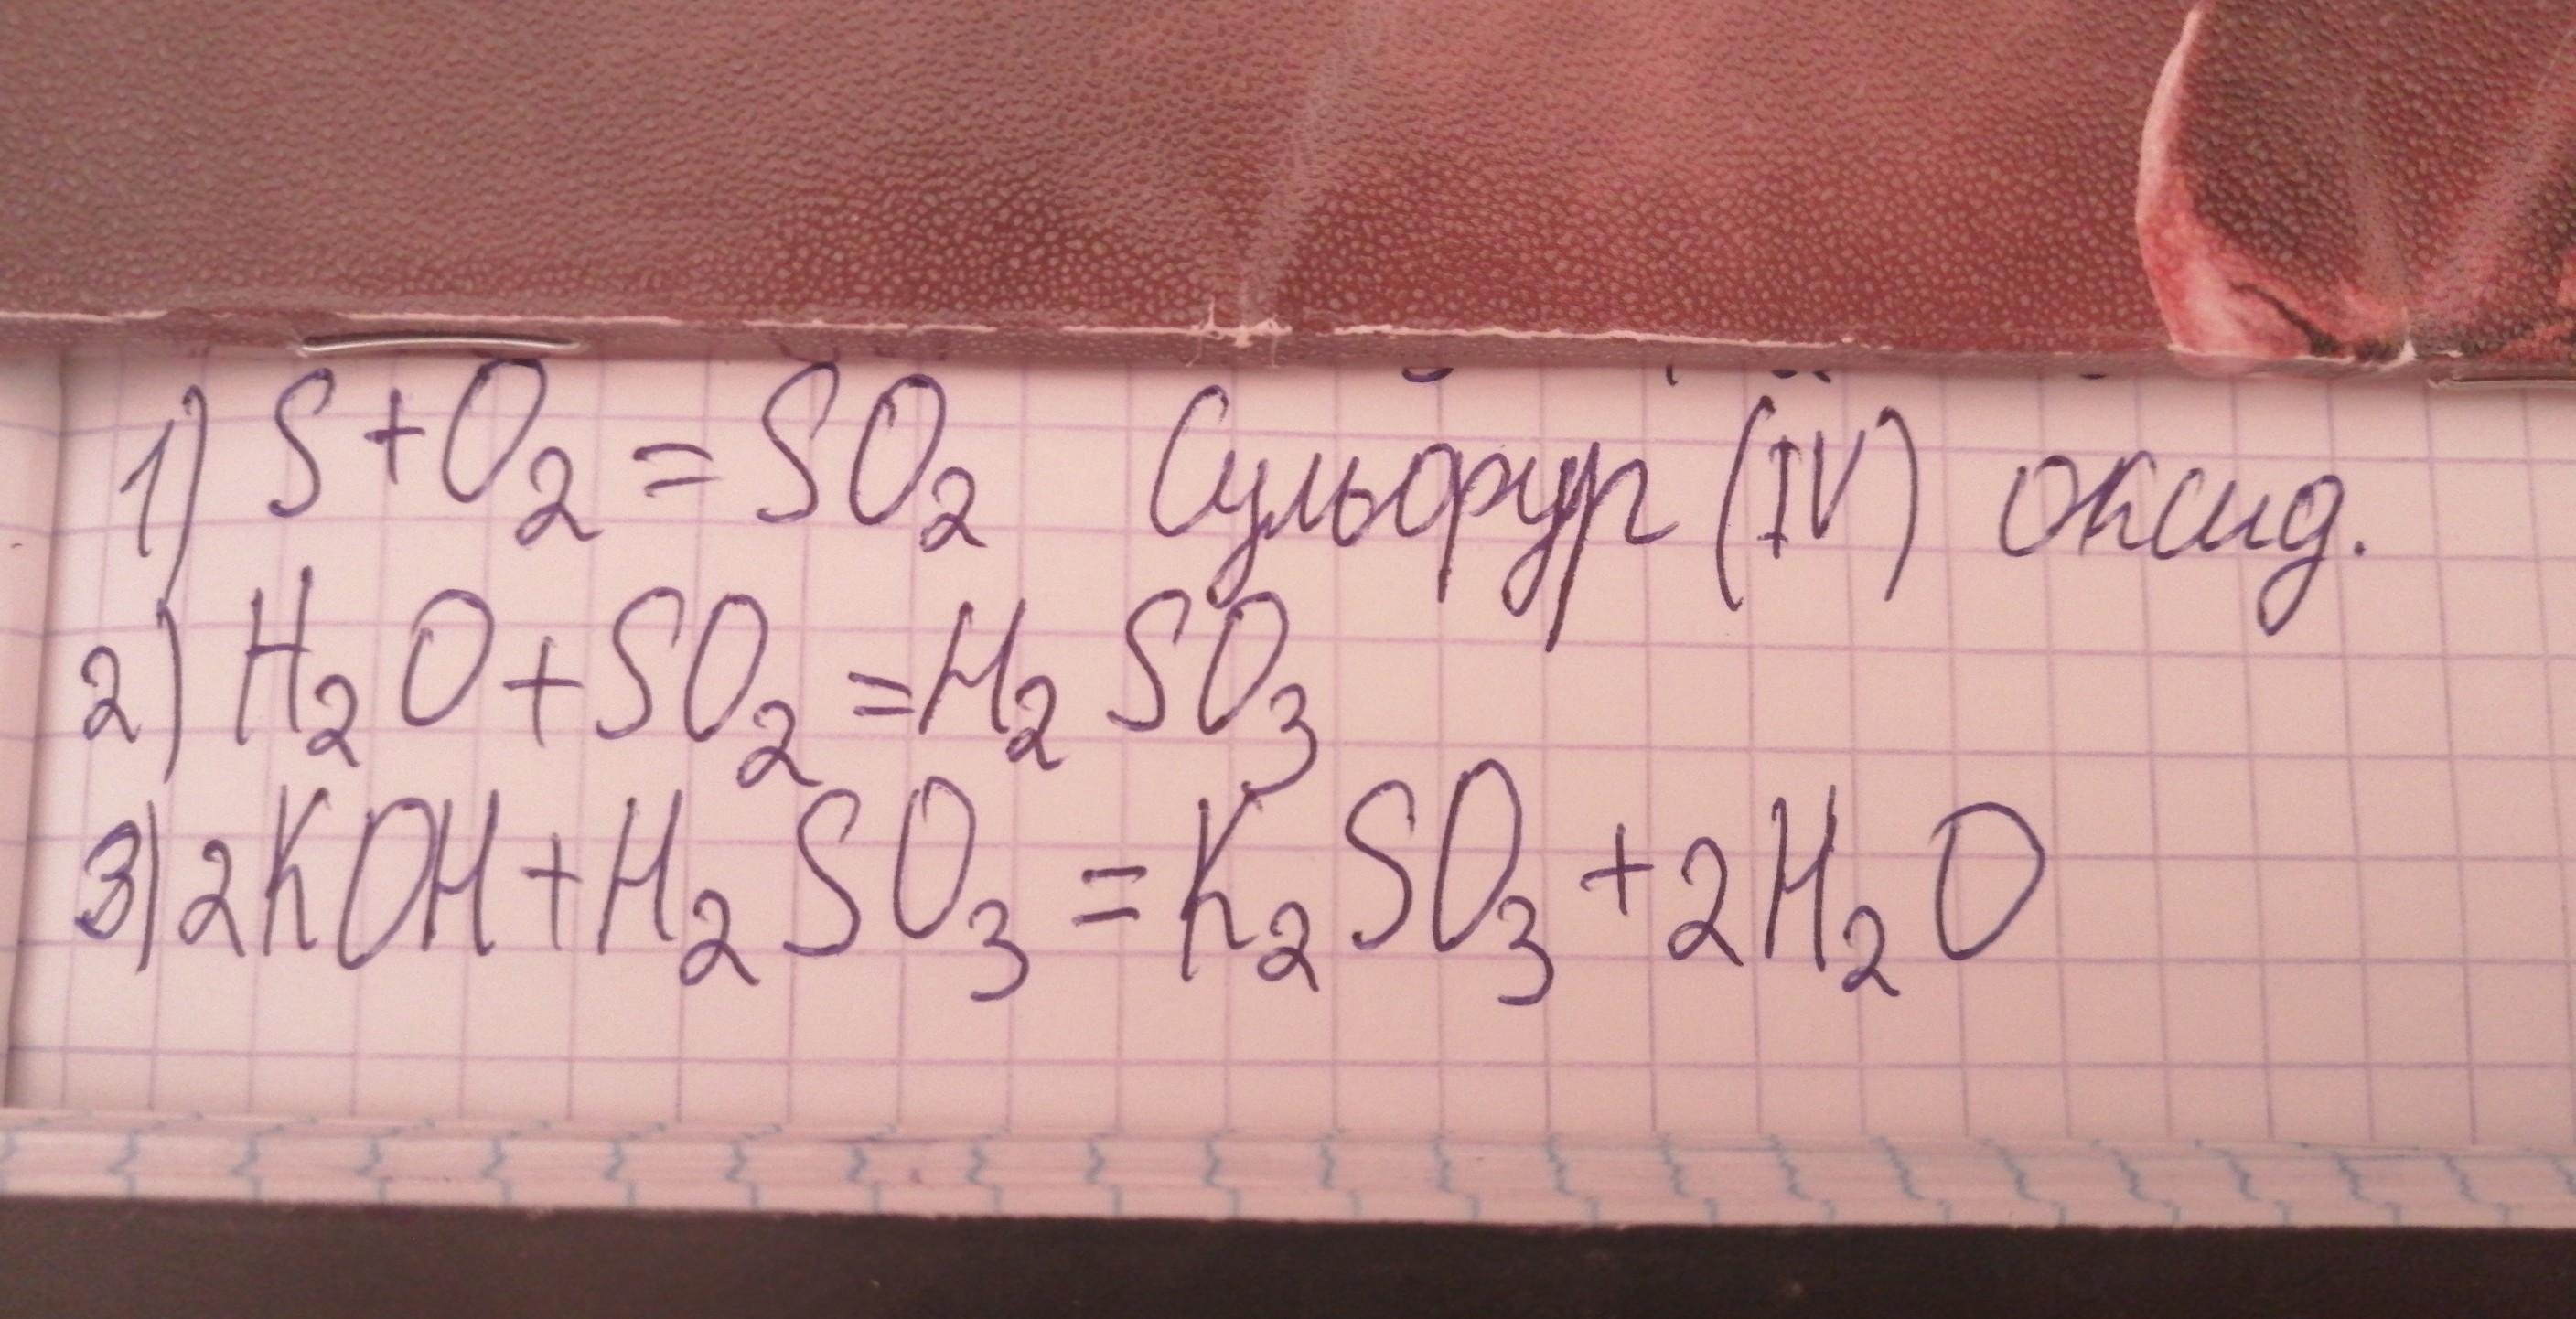 1) S+O₂=SO₂ Сульфур (IV) оксид.
2) H₂O+SO₂=H₂SO₃
3) 2KOH+H₂SO₃=K₂SO₃+2H₂O